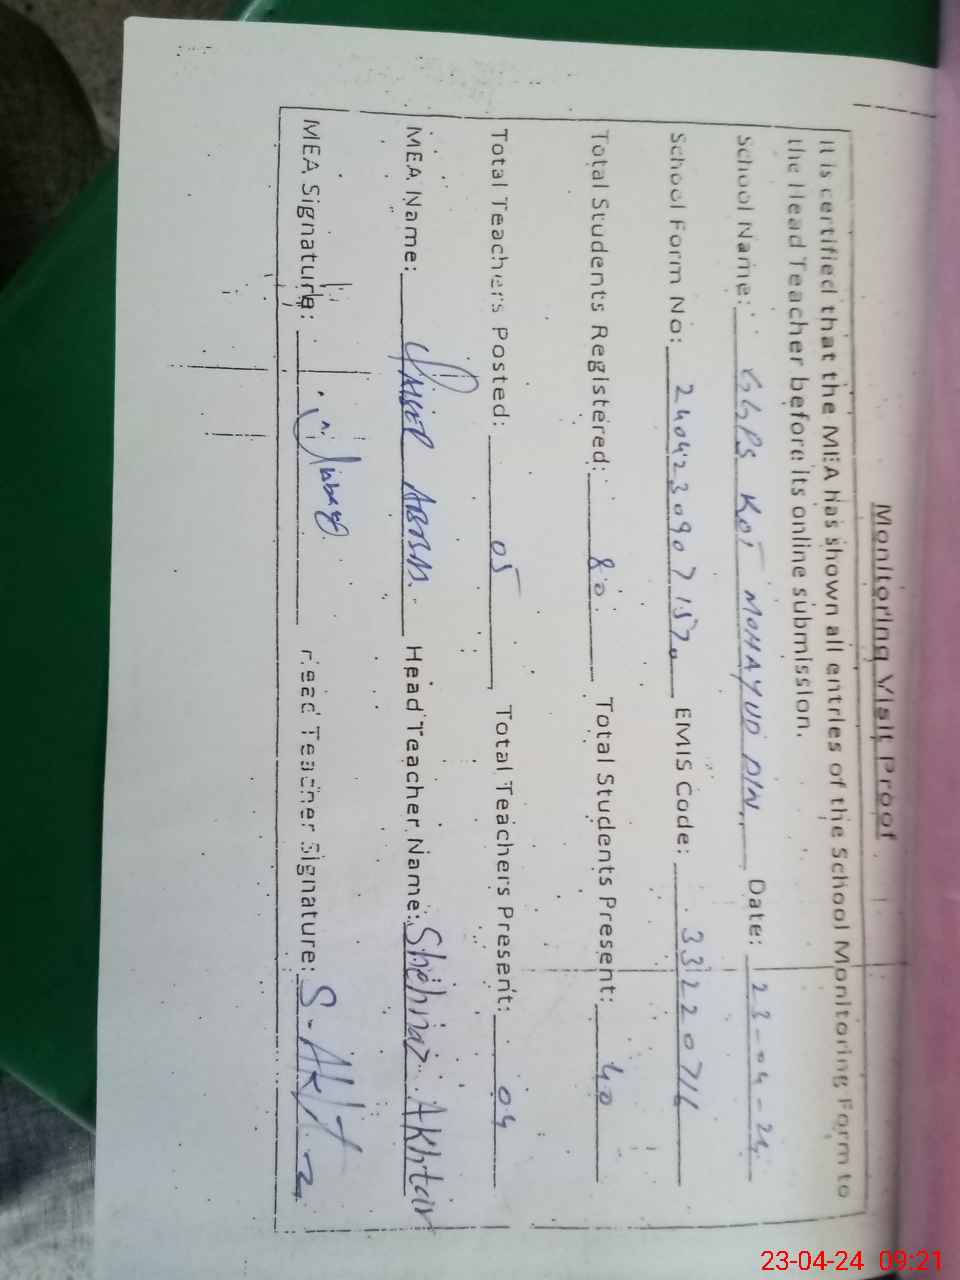 Monitoring Visit Proof
It is certified that the MEA has shown all entries of the School Monitoring Form to
the Head Teacher before its online submission.
School Name: GGPS KOT MOHAYUD DIN Date: 23-04-24
School Form No: 24042309071570 EMIS Code: 33220716
Total Students Registered: 80 Total Students Present: 40
Total Teachers Posted: 05 Total Teachers Present: 04
MEA Name: Head Teacher Name: Shehnaz Akhtar
MEA Signature: Head Teacher Signature: S-Akht
23-04-24 09:21